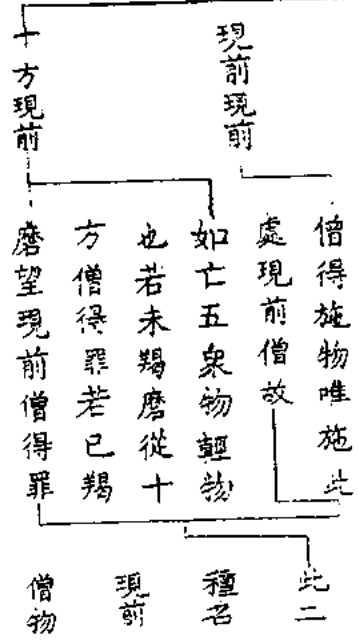 現前現前
僧得施物唯施此
處現前僧故
十方現前
如亡五衆物輕物
也若未羯磨從十
方僧得罪若已羯
磨望現前僧得罪
此二
種名
現前
僧物